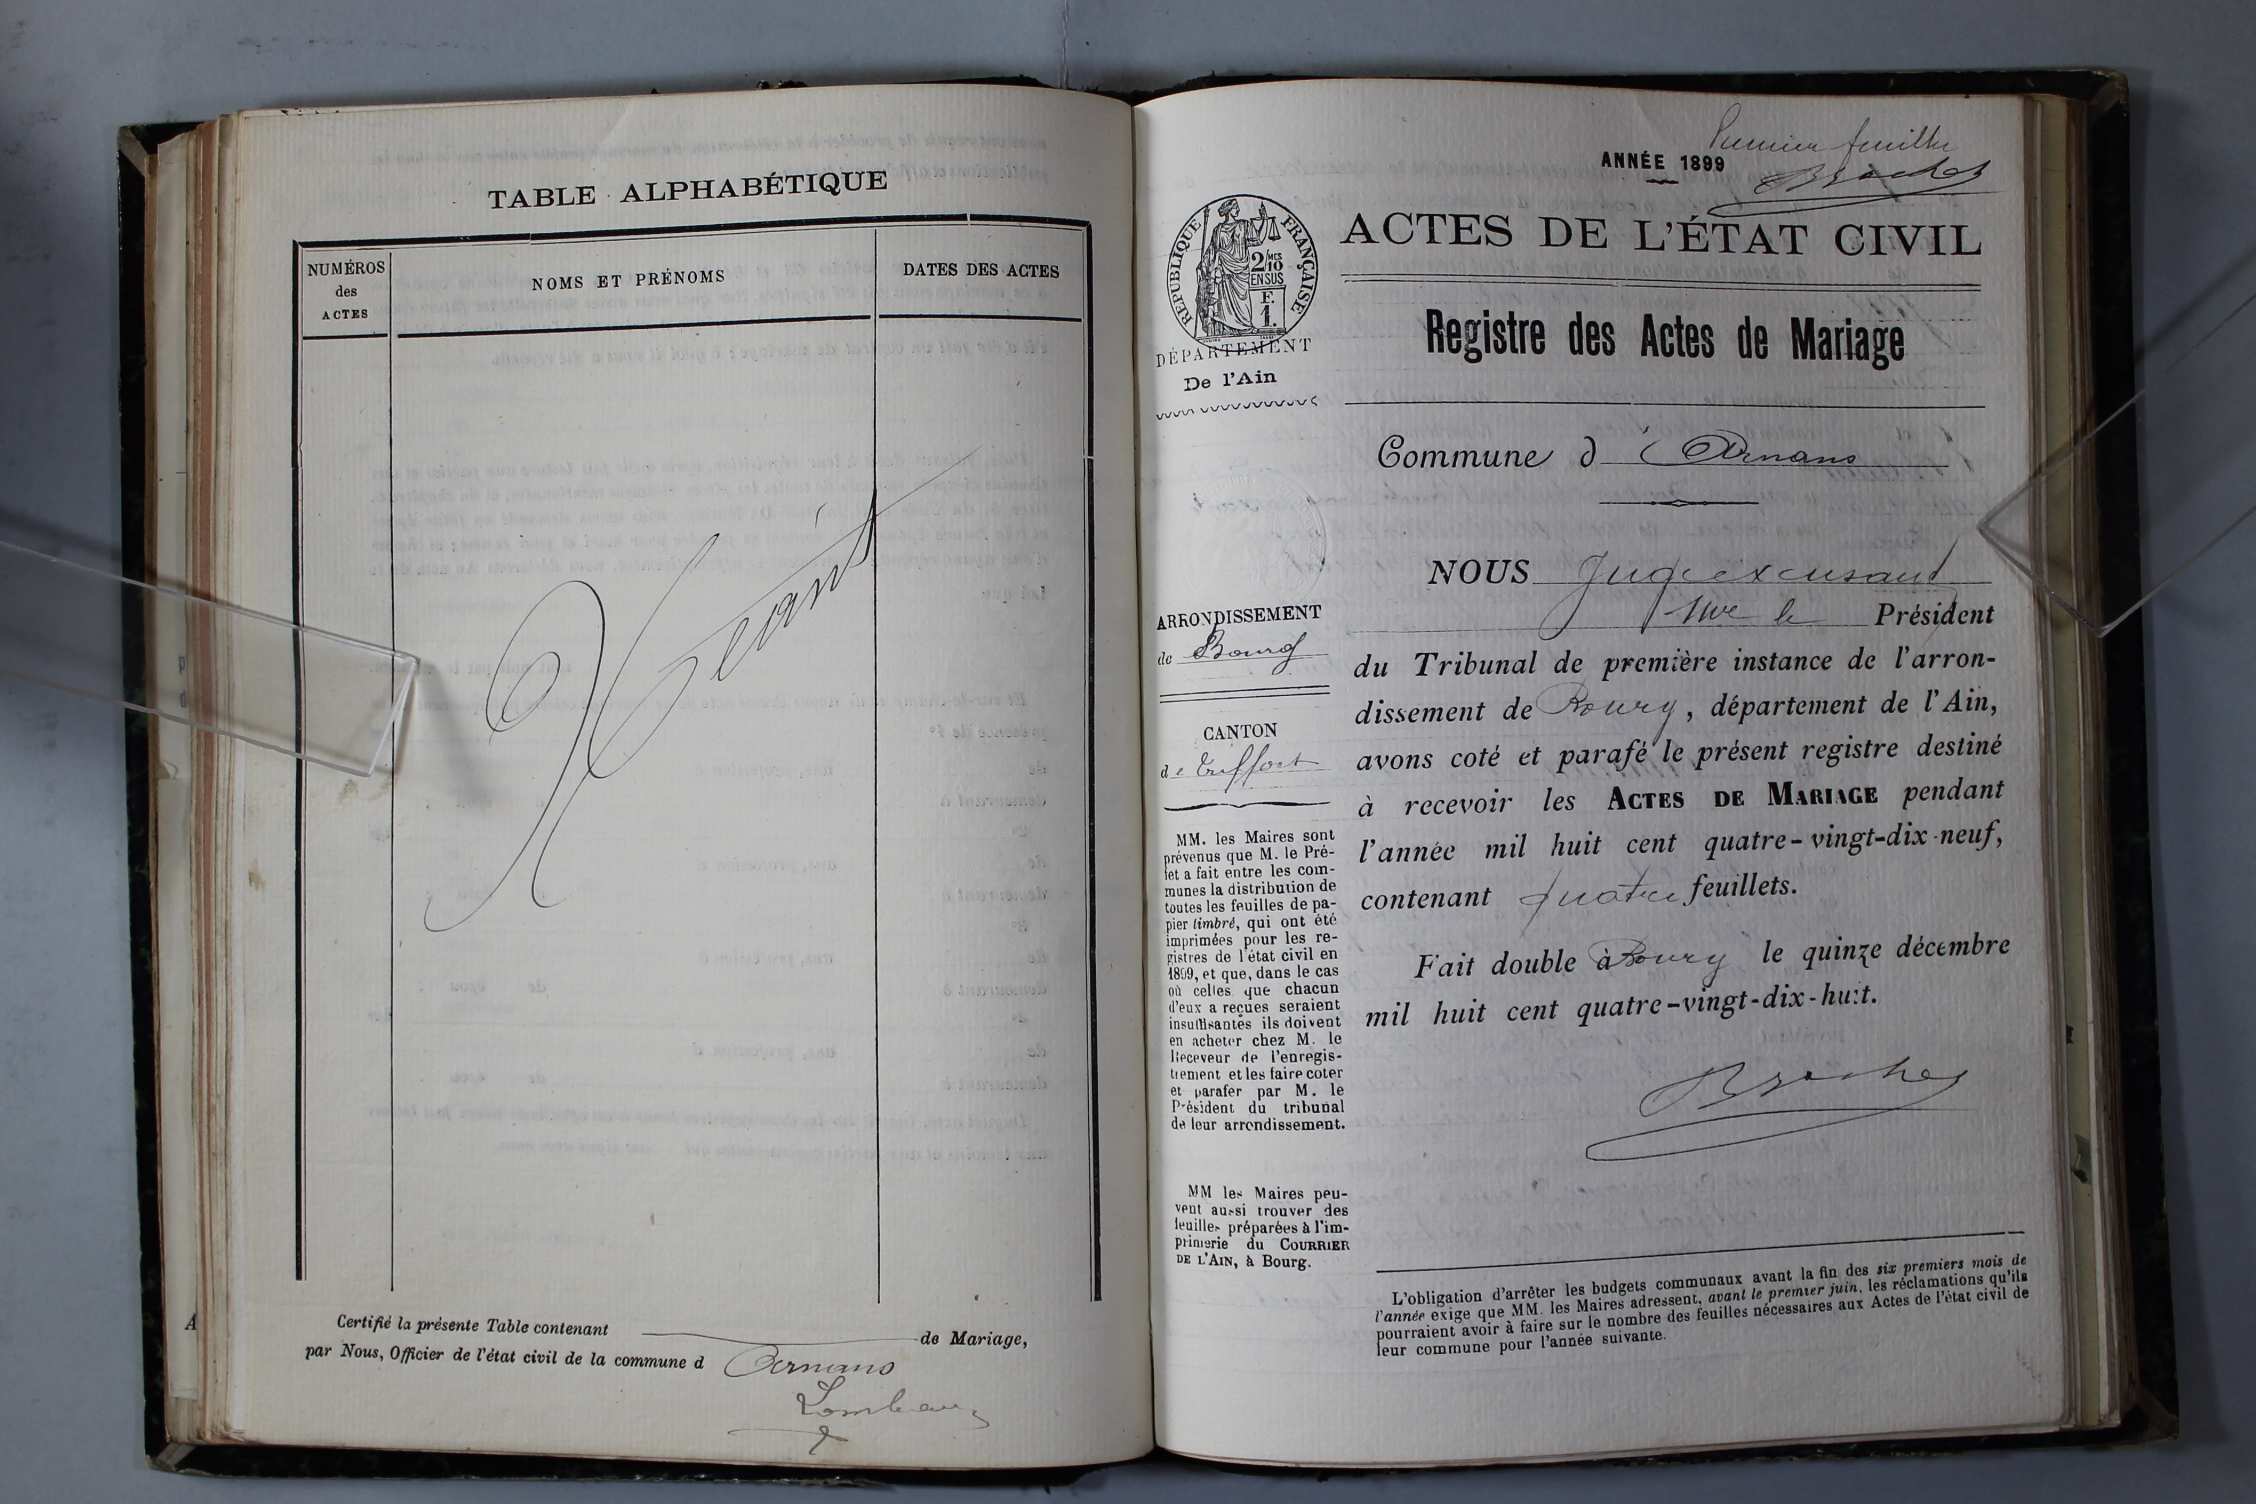 TABLE ALPHABÉTIQUE
NUMÉROS
des
ACTES
NOMS ET PRÉNOMS
DATES DES ACTES
Néant
Certifié la présente Table contenant de Mariage,
par Nous, Officier de l'état civil de la commune d Arnans
Premier feuillet
ANNÉE 1899
Broches
RÉPUBLIQUE FRANÇAISE
2/10 MES
EN SUS
F.
1.
ACTES DE L'ÉTAT CIVIL
DÉPARTEMENT
De l'Ain
Registre des Actes de Mariage
Commune d'Arnans
ARRONDISSEMENT
de Bourg
CANTON
de Treffort
MM. les Maires sont
prévenus que M. le Pré-
fet a fait entre les com-
munes la distribution de
toutes les feuilles de pa-
pier timbré, qui ont été
imprimées pour les re-
gistres de l'état civil en
1899, et que, dans le cas
où celles que chacun
d'eux a reçues seraient
insuffisantes ils doivent
en acheter chez M. le
Receveur de l'enregis-
trement et les faire coter
et parafer par M. le
Président du tribunal
de leur arrondissement.
MM les Maires peu-
vent aussi trouver des
feuilles préparées à l'im-
primerie du COURRIER
DE L'AIN, à Bourg.
NOUS Juge excusant
Mr le Président
du Tribunal de première instance de l'arron-
dissement de Bourg, département de l'Ain,
avons coté et parafé le présent registre destiné
à recevoir les ACTES DE MARIAGE pendant
l'année mil huit cent quatre-vingt-dix-neuf,
contenant quatre feuillets.
Fait double à Bourg le quinze décembre
mil huit cent quatre-vingt-dix-huit.
Broches
L'obligation d'arrêter les budgets communaux avant la fin des six premiers mois de
l'année exige que MM. les Maires adressent, avant le premier juin, les réclamations qu'ils
pourraient avoir à faire sur le nombre des feuilles nécessaires aux Actes de l'état civil de
leur commune pour l'année suivante.